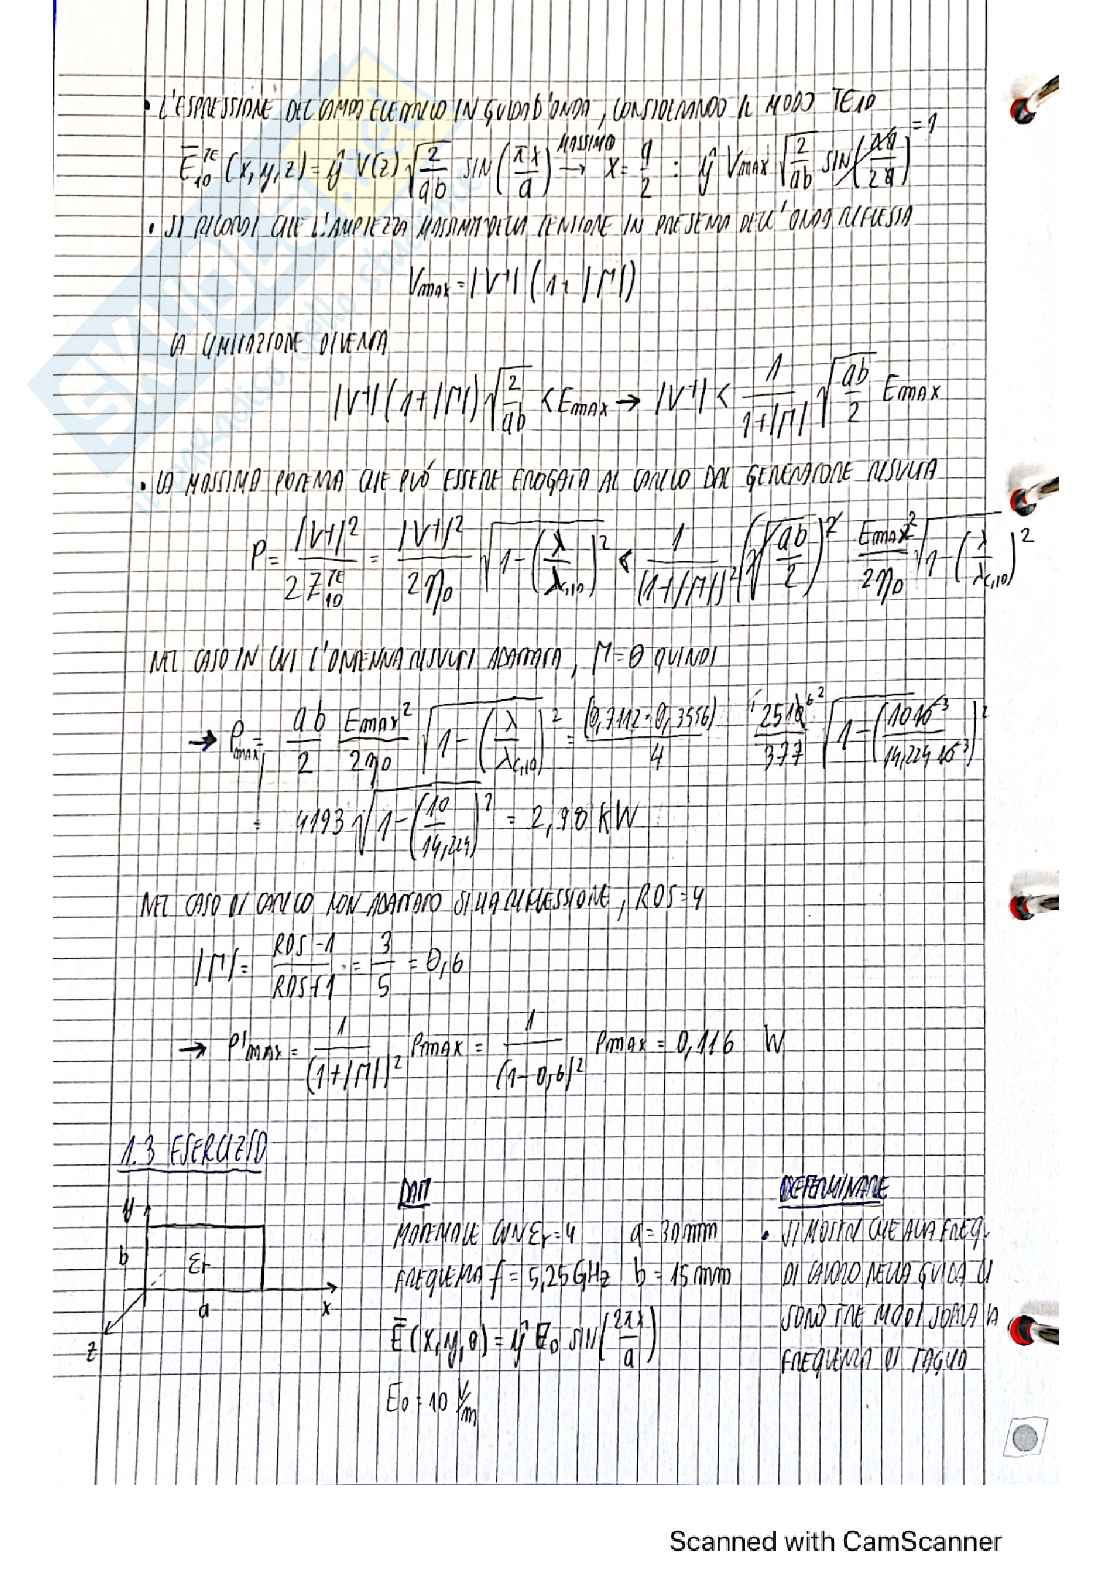 • L'ESPRESSIONE DEL CAMPO ELETTRICO IN GUIDA D'ONDA, CONSIDERANDO IL MODO TE10
E̅₁₀^TE (x,y,z) = ŷ V(z) √(2/ab) SIN(πx/a) MASSIMO → x = a/2 : ŷ Vmax √(2/ab) SIN(πa/2a) = 1
• SI RICORDI CHE L'AMPIEZZA MASSIMA DELLA TENSIONE IN PRESENZA DELL'ONDA RIFLESSA
Vmax = |V+| (1 + |Γ|)
LA LIMITAZIONE DIVENTA
|V+| (1+|Γ|) √(2/ab) < EMAX → |V+| < 1/(1+|Γ|) √(ab/2) EMAX
• LA MASSIMA POTENZA CHE PUÓ ESSERE EROGATA AL CARICO DAL GENERATORE RISULTA
P = |V+|²/(2Z₁₀^TE) = |V+|²/(2η₀) √(1-(λ/λc,10)²) < 1/(1+|Γ|)² (√(ab/2))² Emax²/(2η₀) √(1-(λ/λc,10)²)
NEL CASO IN CUI L'ANTENNA RISULTI ADATTATA, Γ=0 QUINDI
→ Pmax = ab/2 Emax²/(2η₀) √(1-(λ/λc,10)²) = (0,7112·0,3556)/4 /377 √(1-(10·10⁻³/14,224·10⁻³)²)
= 4193 √(1-(10/14,224)²) = 2,98 kW
NEL CASO DI CARICO NON ADATTATO SI HA RIFLESSIONE, ROS=4
|Γ| = (ROS-1)/(ROS+1) = 3/5 = 0,6
→ P'MAX = 1/(1+|Γ|)² PMAX = 1/(1-0,6)² PMAX = 0,116 W
1.3 ESERCIZIO
y
b
εr
a
x
z
DATI
MATERIALE CON εr=4 a=30mm
FREQUENZA f = 5,25 GHz b = 15 mm
E̅(x,y,0) = ŷ E₀ SIN(2πx/a)
E₀ = 10 V/m
DETERMINARE
• SI MOSTRI CHE ALLA FREQ.
DI LAVORO NELLA GUIDA CI
SONO TRE MODI SOPRA LA
FREQUENZA DI TAGLIO
Scanned with CamScanner